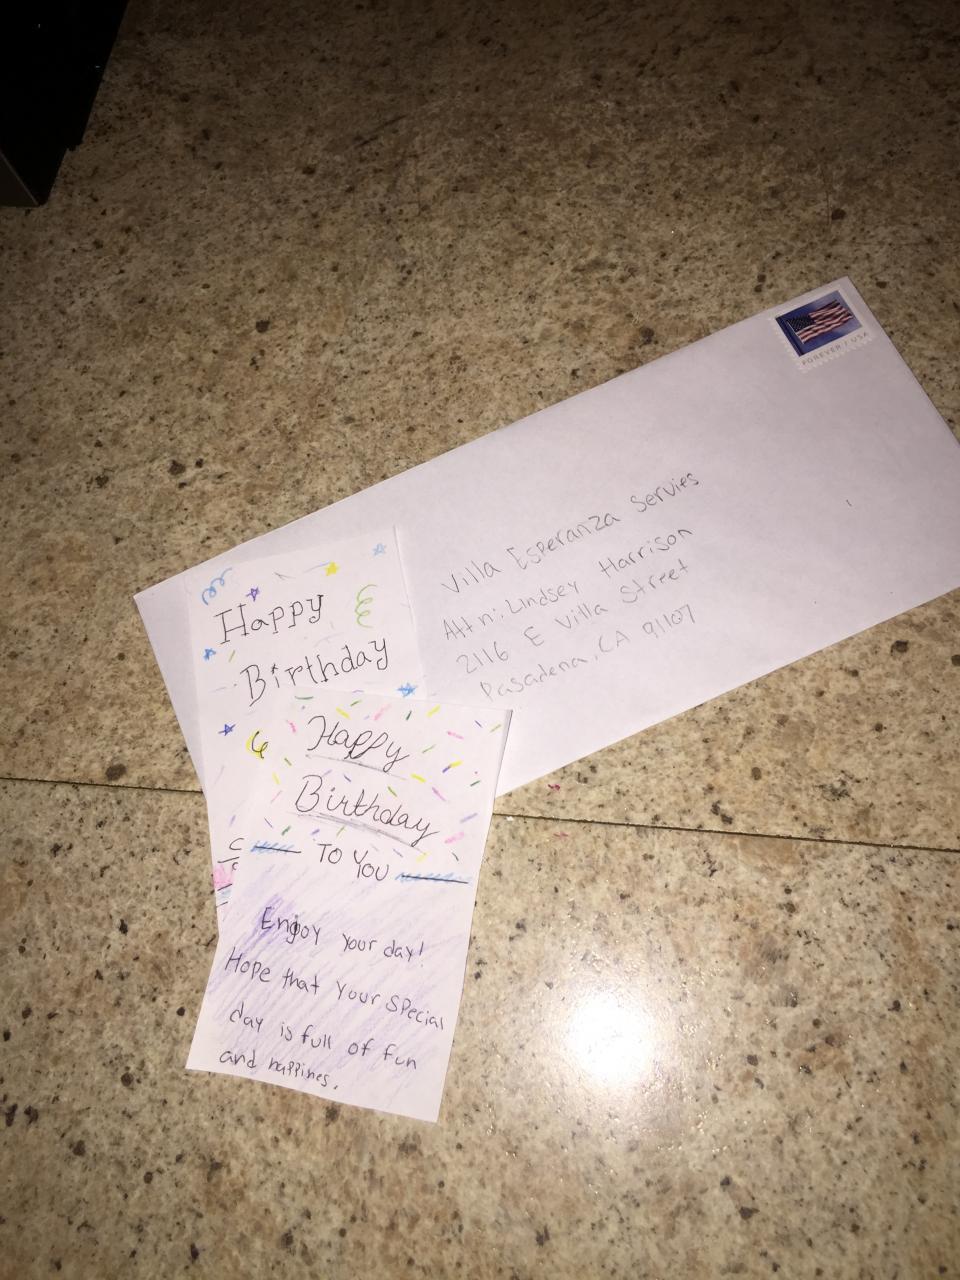 FOREVER / USA
Villa Esperanza Servies
Attn: Lindsey Harrison
2116 E Villa Street
Pasadena, CA 91107
Happy
Birthday
Happy
Birthday
TO YOU
Enjoy your day!
Hope that your special
day is full of fun
and happines.